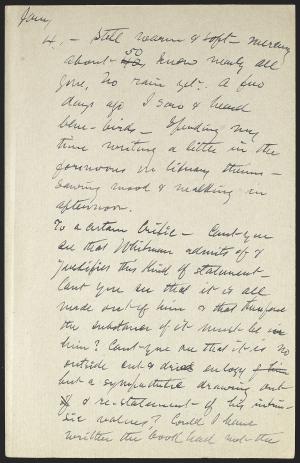 Jany
4, - Still warm & soft - mercury
about 50, snow nearly all
gone, No rain yet. A few
days ago I saw & heard
blue-birds - Spending my
time writing a little in the
forenoons in library
sawing wood & walking in
afternoon.
To a certain Critic - Cant you
see that Whitman admits of &
justifies this kind of statement -
Cant you see that it is all
made out of him & that therefore
the substance of it must be in
him? Cant you see that it is no
outside cut & dried eulogy
but a sympathetic drawing out
& re-statement of his intrin-
sic values? Could I have
written the book had not the